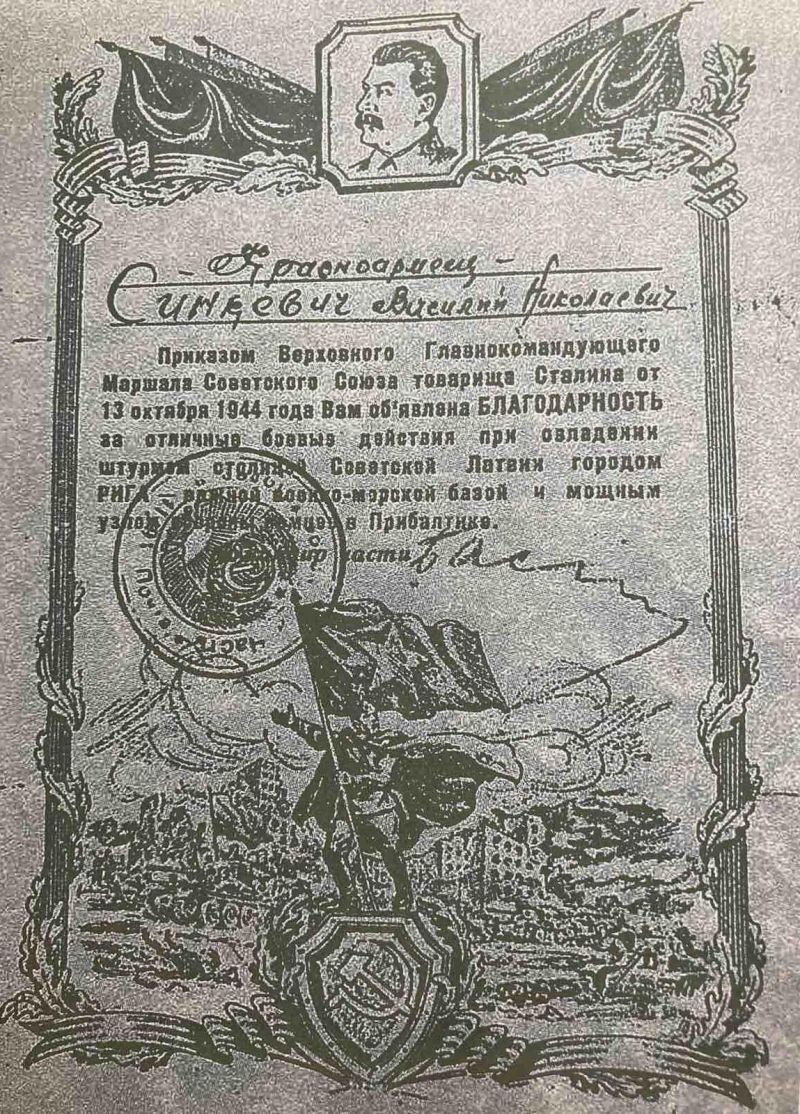 - Красноармеец -
Синкевич Василий Николаевич
Приказом Верховного Главнокомандующего
Маршала Советского Союза товарища Сталина от
13 октября 1944 года Вам об'явлена БЛАГОДАРНОСТЬ
за отличные боевые действия при овладении
штурмом столицей Советской Латвии городом
РИГА – важной военно-морской базой и мощным
узлом обороны немцев в Прибалтике.
Командир части